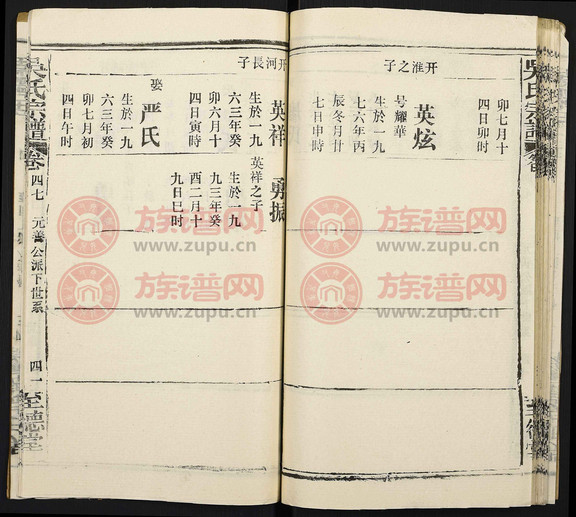 吳氏宗譜
卯七月十
四日卯时
开淮之子
英炫
号耀華
生於一九
七六年丙
辰冬月廿
七日申時
开河長子
英祥
生於一九
六三年癸
卯六月十
四日寅時
娶
严氏
生於一九
六三年癸
卯七月初
四日午时
勇振
英祥之子
生於一九
九三年癸
酉二月十
九日巳时
吳氏宗譜
四七
元善公派下世系
四一
至德堂
族谱网
www.zupu.cn
族谱网
www.zupu.cn
族谱网
www.zupu.cn
族谱网
www.zupu.cn